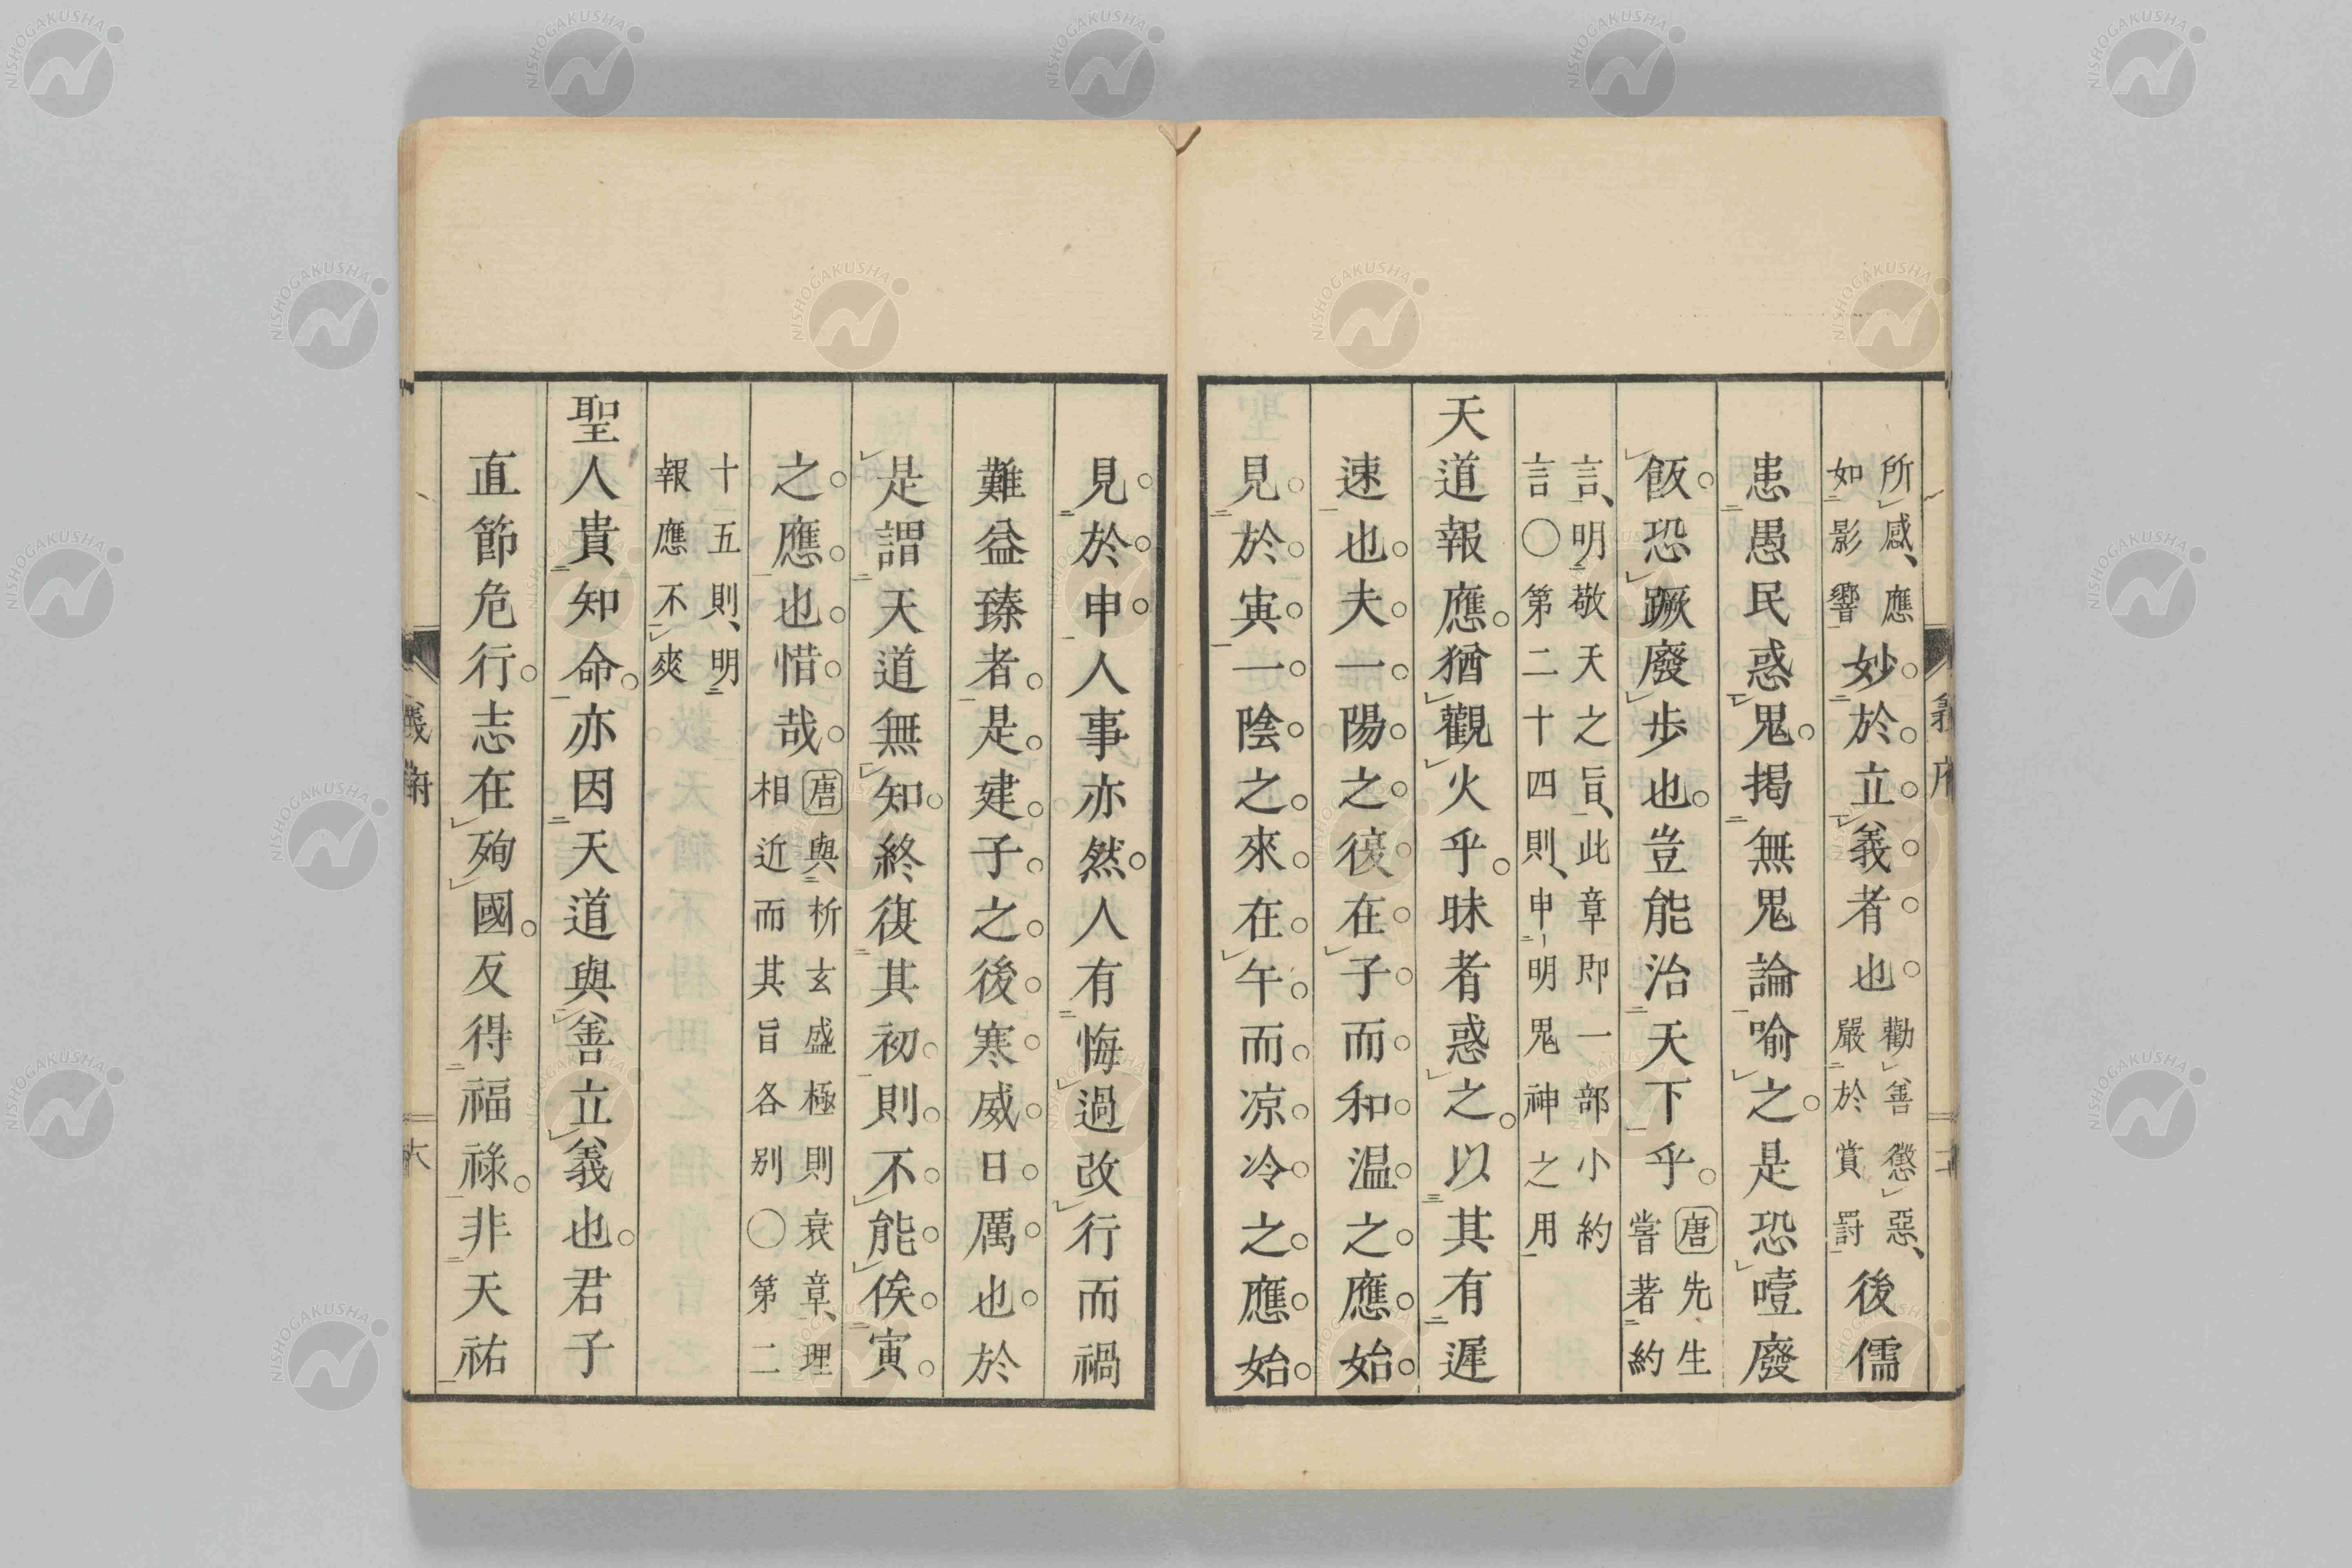 所感、應如影響妙於立義者也勸善懲惡、嚴於賞罰後儒
患愚民惑鬼。揭無鬼論喻之。是恐噎廢
飯。恐蹶廢步也。豈能治天下乎。唐先生嘗著約
言、明明敬天之旨、此章即一部小約言〇第二十四則、申明鬼神之用
天道報應。猶觀火乎。昧者惑之。以其有遲
速也。夫一陽之復在子而和温之應始
見於寅一陰之來在午而凉冷之應始
見於申人事亦然。人有悔過改行而禍
難益臻者。是建子之後寒威日厲也。於
是謂天道無知。終復其初則不能俟寅
之應也惜哉唐與析玄盛極則衰章、理相近而其旨各別〇第二
十五則、明報應不爽
聖人貴知命。亦因天道與善立義也。君子
直節危行。志在殉國。反得福祿。非天祐
NISHOGAKUSHA